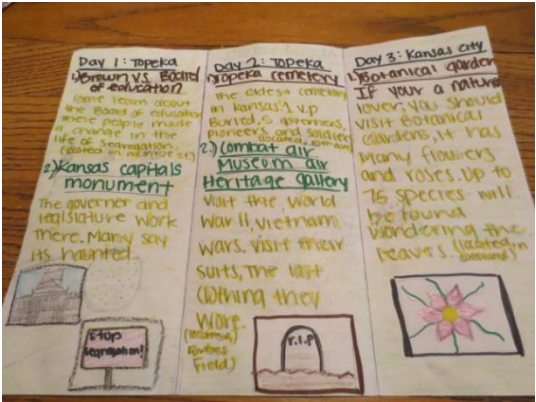 Day 1: Topeka
1.) Brown vs. Board
of education
Come learn about
the Board of education
these people made
a change in the
life of segregation.
(located on
2.) Kansas capitals
monument
The governor and
legislature work
there. Many say
its haunted
Stop
segregation!
Day 2: Topeka
1.) Topeka cemetery
The oldest cemetery
in kansas! 1 v.p
Buried, 6 governors,
pioneers and soldiers
(located
2.) Combat air
Museum air
Heritage gallery
Visit the, World
War II, Vietnam,
wars. visit their
suits, The last
clothing they
wore.
(located
Forbes
Field)
r.i.p
Day 3: Kansas city
1. Botanical garden
If your a nature
lover, you should
visit Botanical
Gardens, it has
Many flowers
and roses. Up to
75 species will
be found
wondering the
leaves. (located in